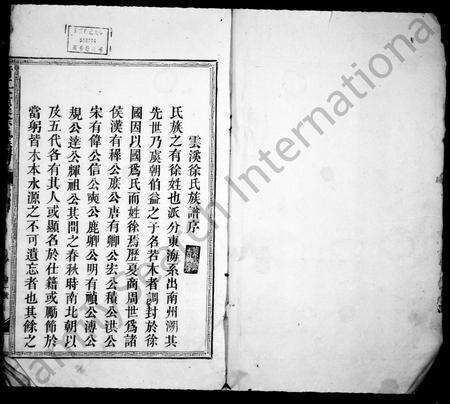 雲溪徐氏族譜序
氏族之有徐姓也派分東海系出南州溯其
先世乃虞朝伯益之子名若木者調封於徐
國因以國為氏而姓徐焉歷夏商周世為諸
侯漢有穉公庶公唐有卿公宏公積公洪公
宋有偉公信公奭公鹿卿公明有禎公溥公
規公達公輝祖公其間之春秋時南北朝以
及五代各有其人或顯名於仕籍或勵節於
當躬皆木本水源之不可遺忘者也其餘之
FamilySearch International